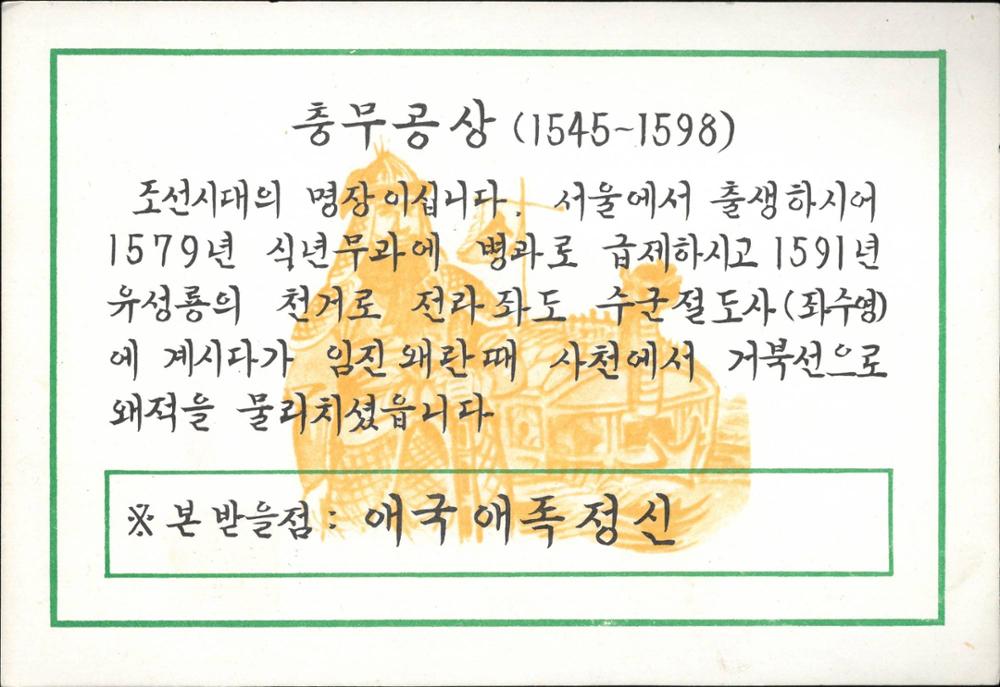 충무공상 (1545~1598)
조선시대의 명장이십니다. 서울에서 출생하시어
1579년 식년무과에 병과로 급제하시고 1591년
유성룡의 천거로 전라좌도 수군절도사(좌수영)
에 계시다가 임진왜란때 사천에서 거북선으로
왜적을 물리치셨읍니다
※ 본받을점 : 애국애족정신